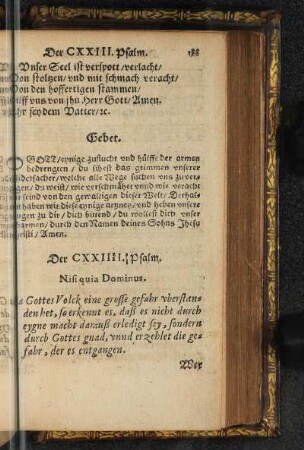 Der CXXIII. Psalm. 188
Vnser Seel ist verspott/verlacht/
Von stoltzen/vnd mit schmach veracht/
Von den hoffertigen stammen/
hilff vns von jhn Herr Gott/Amen.
Ehr sey dem Vatter/ꝛc.
Gebet.
GOtt/eynige zuflucht vnd hülffe der armen
bedrengten/du sihest das grimmen vnserer
Widersacher/welche alle Wege suchen vns zu ver-
/du weist/wie verschmähet vnnd wie veracht
wir seind von den gewaltigen dieser Welt/Derhal-
haben wir diese eynige artzney/vnd heben vnsere
augen zu dir/dich bittend/du wollest dich vnser
erbarmen/durch den Namen deines Sohns Jhesu
Christi/Amen.
Der CXXIIII. Psalm.
Nisi quia Dominus.
Gottes Volck eine grosse gefahr vberstan-
den het, so erkennt es, daß es nicht durch
eygne macht darauß erledigt sey, sondern
durch Gottes gnad, vnnd erzehlet die ge-
fahr, der es entgangen.
Wer